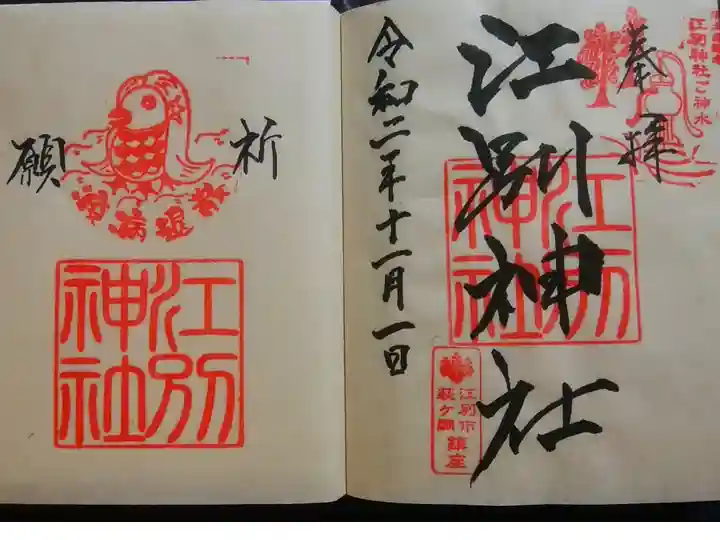 奉拝
江別神社ご神水
江別神社
江別神社
江別市
萩ヶ岡
鎮座
令和二年十一月一日
祈願
疫病退散
江別神社